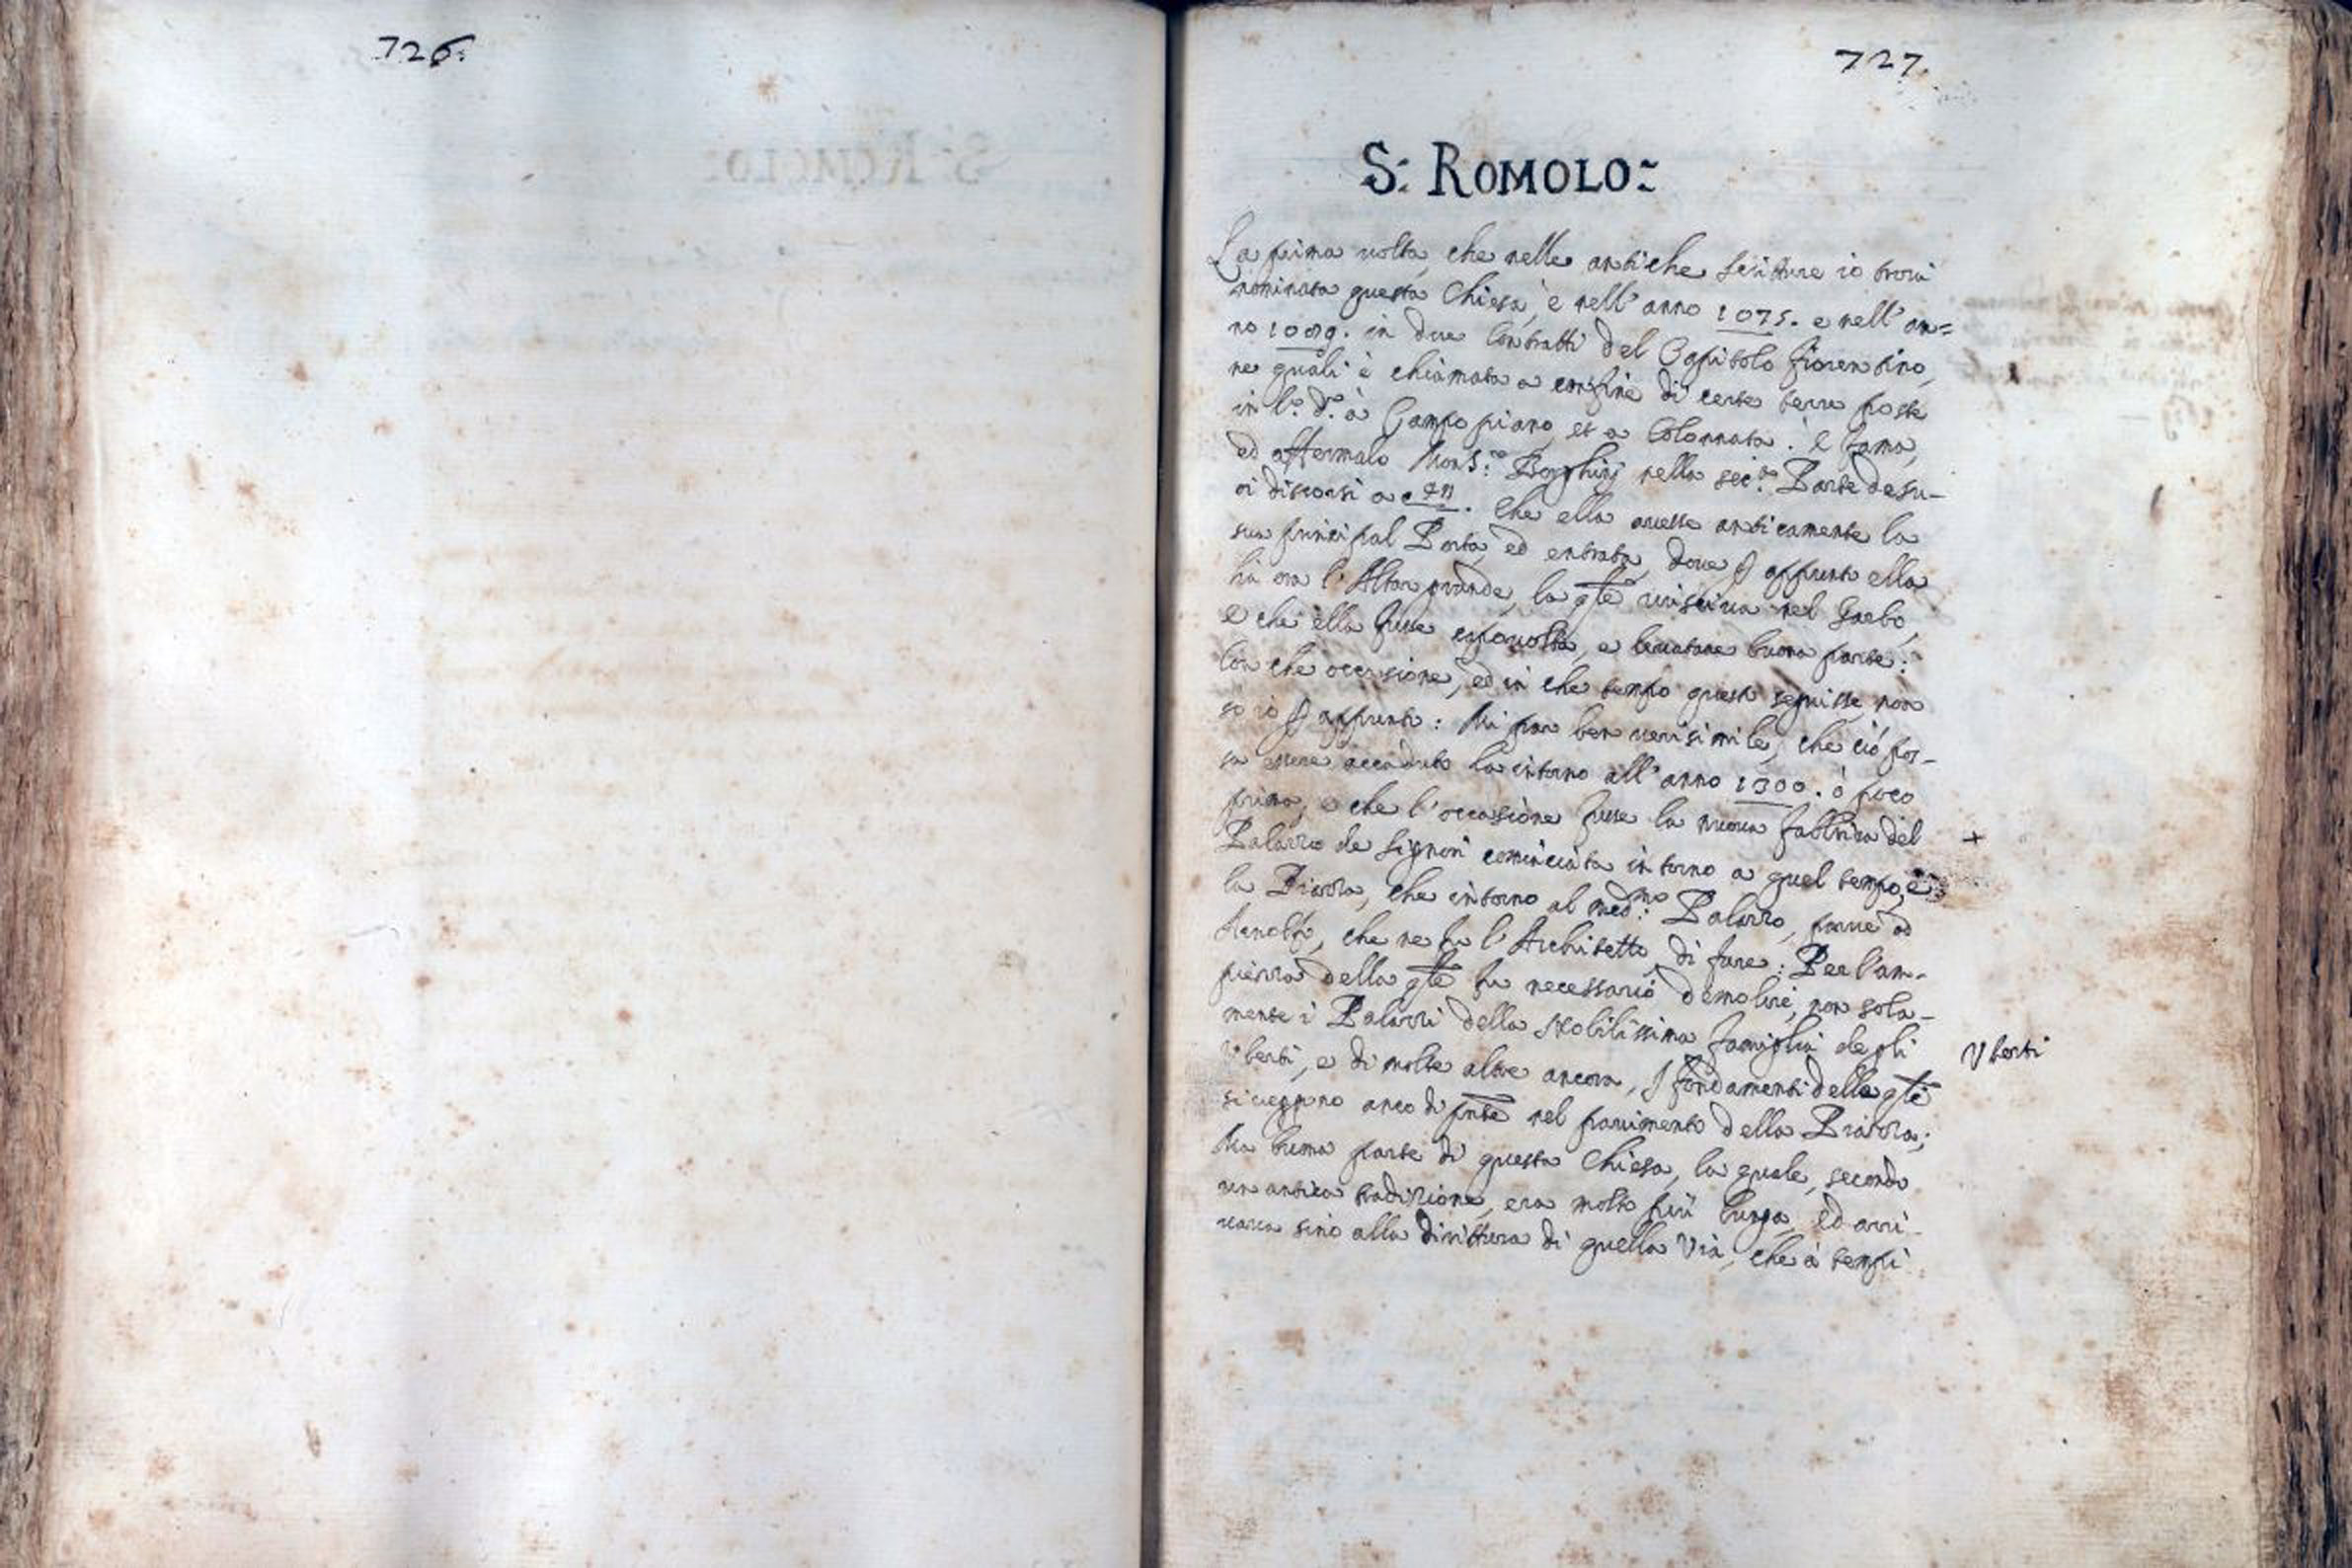 726.
727.
S: ROMOLO:
La prima uolta, che nelle antiche scritture io troui
nominata questa Chiesa, è nell'anno 1075. e nell'an=
no 1089. in due Contratti del Capitolo fiorentino,
ne quali è chiamata a confine di certe terre poste
in l.o d.o à Campo piano, et a Colonnata. È fama,
ed affermalo Mons.re Borghinj nella sec.da Parte de su-
oi discorsi a c. Che ella auesse anticamente la
sua principal Porta, ed entrata, doue p appunto ella
hà ora l'Altar grande, la qle riusciua nel Garbo,
e che ella fusse capouolta, e leuatane buona parte:
Con che occasione, ed in che tempo questo seguisse, non
sò io p appunto: Mi par ben uerisimile, che ciò pos-
sa essere accaduto là intorno all'anno 1300. ò poco
prima, e che l'occasione fusse la nuoua fabbrica del
Palazzo de Signori cominciata intorno a quel tempo, e
la Piazza, che intorno al med.mo Palazzo, parue ad
Arnolfo, che ne fu l'Architetto, di fare: Per l'am-
piezza della qle fu necessario demolire, non sola-
mente i Palazzi della Nobilissima famiglia degli
Vberti, e di molte altre ancora, i fondamenti delle qli
si ueggono anco di pnte nel pauimento della Piazza;
Ma buona parte di questa Chiesa, la quale, secondo
un antica tradizione, era molto più lunga, ed arri-
uaua sino alla dirittura di quella Via, che à tempi
+
Vberti